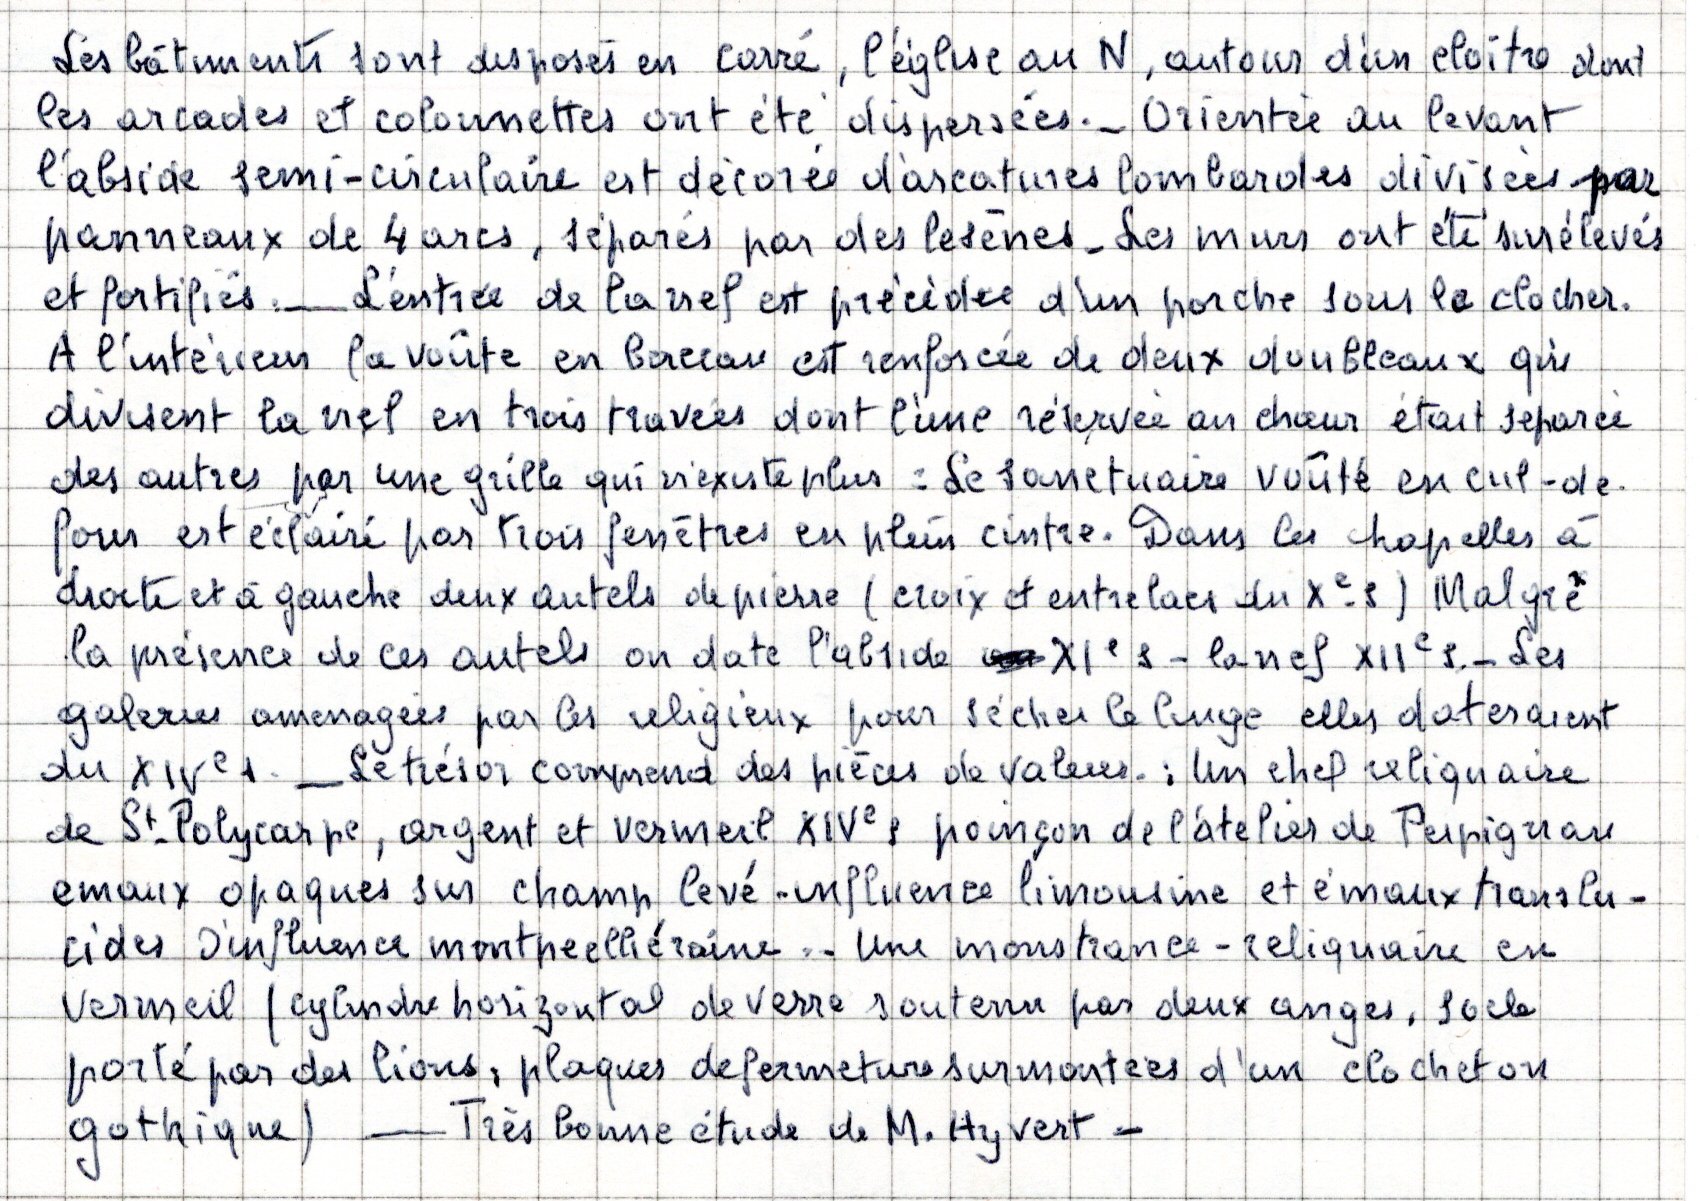 Les bâtiments sont disposés en carré, l'église au N, autour d'un cloître dont
les arcades et colonnettes ont été dispersées. - Orientée au levant
l'abside semi-circulaire est décorée d'arcatures lombardes divisées par
panneaux de 4 arcs, séparés par des lesènes - Les murs ont été surélevés
et fortifiés. — L'entrée de la nef est précédée d'un porche sous le clocher.
A l'intérieur la voûte en berceau est renforcée de deux doubleaux qui
divisent la nef en trois travées dont l'une réservée au chœur était séparée
des autres par une grille qui n'existe plus : Le sanctuaire voûté en cul-de-
four est éclairé par trois fenêtres en plein cintre. Dans les chapelles à
droite et à gauche deux autels de pierre (croix et entrelacs du Xe s) Malgré
la présence de ces autels on date l'abside XIe s - la nef XIIe s. - Les
galeries amenagées par les religieux pour sécher le linge elles dateraient
du XIVe s. — Le trésor comprend des pièces de valeur. : Un chef reliquaire
de St. Polycarpe, argent et vermeil XIVe s poinçon de l'atelier de Perpignan
emaux opaques sur champ levé - influence limousine et émaux translu-
cides d'influence montpeelliéraine .- Une monstrance - reliquaire en
vermeil (cylindre horizontal de verre soutenu par deux anges, socle
porté par des lions, plaques de fermeture surmontées d'un clocheton
gothique) — Très bonne étude de M. Hyvert -